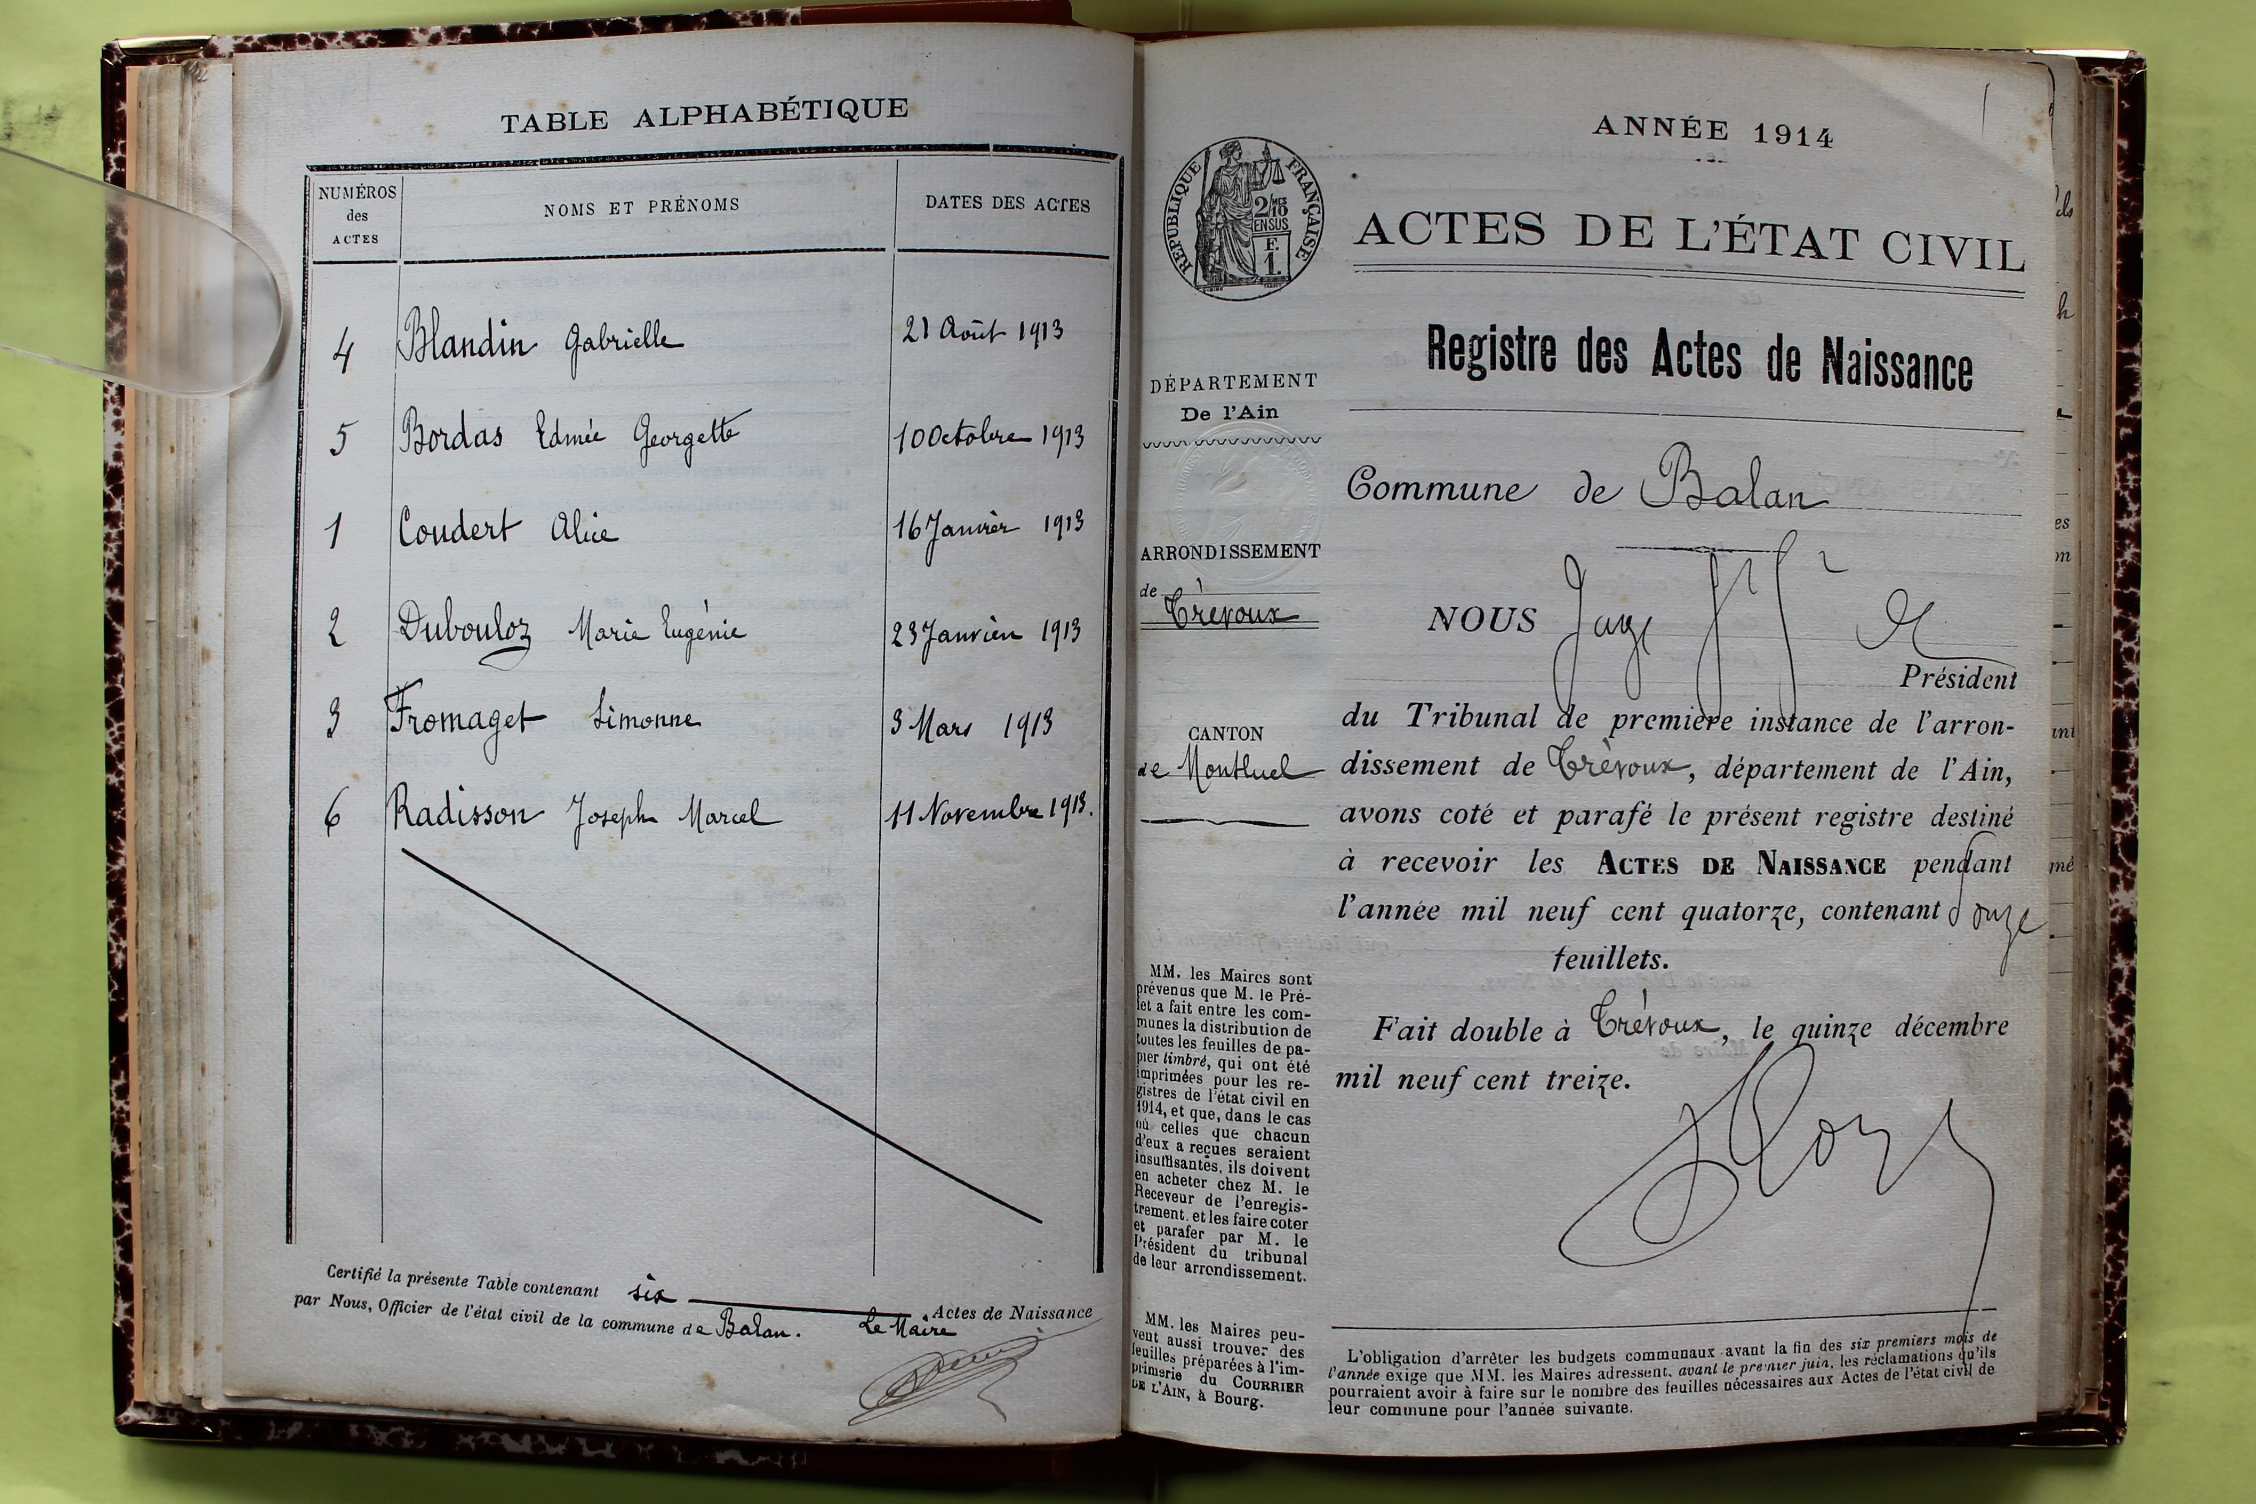 TABLE ALPHABÉTIQUE
NUMÉROS
des
ACTES
NOMS ET PRÉNOMS
DATES DES ACTES
4 Blandin Gabrielle 21 Août 1913
5 Bordas Edmée Georgette 10 Octobre 1913
1 Coudert Alice 16 Janvier 1913
2 Dubouloz Marie Eugénie 23 Janvier 1913
3 Fromaget Simonne 3 Mars 1913
6 Radisson Joseph Marcel 11 Novembre 1913.
Certifié la présente Table contenant six Actes de Naissance
par Nous, Officier de l'état civil de la commune de Balan. Le Maire
ANNÉE 1914
RÉPUBLIQUE FRANÇAISE
2/10 MES
EN SUS
F.
1.
ACTES DE L'ÉTAT CIVIL
Registre des Actes de Naissance
DÉPARTEMENT
De l'Ain
ARRONDISSEMENT
de Trévoux
CANTON
de Montluel
MM. les Maires sont
prévenus que M. le Pré-
fet a fait entre les com-
munes la distribution de
toutes les feuilles de pa-
pier timbré, qui ont été
imprimées pour les re-
gistres de l'état civil en
1914, et que, dans le cas
où celles que chacun
d'eux a reçues seraient
insuffisantes, ils doivent
en acheter chez M. le
Receveur de l'enregis-
trement, et les faire coter
et parafer par M. le
Président du tribunal
de leur arrondissement.
MM. les Maires peu-
vent aussi trouver des
feuilles préparées à l'im-
primerie du COURRIER
DE L'AIN, à Bourg.
Commune de Balan
NOUS Juge
Président
du Tribunal de première instance de l'arron-
dissement de Trévoux, département de l'Ain,
avons coté et parafé le présent registre destiné
à recevoir les ACTES DE NAISSANCE pendant
l'année mil neuf cent quatorze, contenant douze
feuillets.
Fait double à Trévoux, le quinze décembre
mil neuf cent treize.
L'obligation d'arrêter les budgets communaux avant la fin des six premiers mois de
l'année exige que MM. les Maires adressent, avant le premier juin, les réclamations qu'ils
pourraient avoir à faire sur le nombre des feuilles nécessaires aux Actes de l'état civil de
leur commune pour l'année suivante.